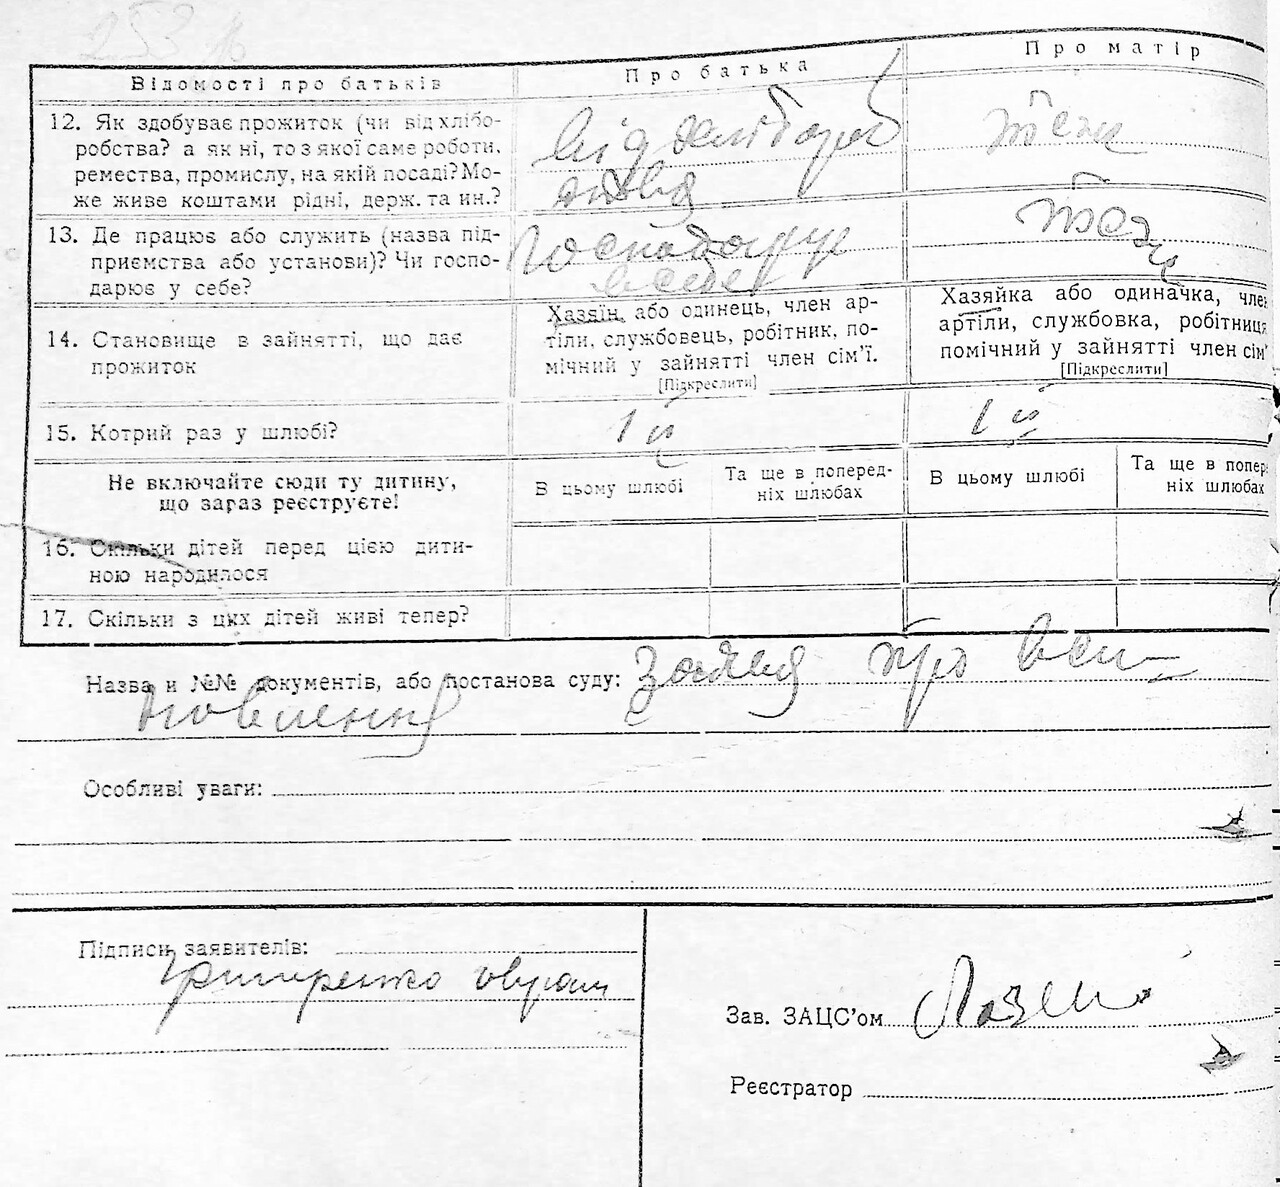 253
Відомості про батьків
Про батька
Про матір
12. Як здобуває прожиток (чи від хлібо-
робства? а як ні, то з якої саме роботи,
ремества, промислу, на якій посаді? Мо-
же живе коштами рідні, держ. та ин.?
від
теж
13. Де працює або служить (назва під-
приємства або установи)? Чи госпо-
дарює у себе?
Господарює
в себе
теж
14. Становище в зайнятті, що дає
прожиток
Хазяїн, або одинець, член ар-
тіли, службовець, робітник, по-
мічний у зайнятті член сім’ї.
[Підкреслити]
Хазяйка або одиначка, член
артіли, службовка, робітниця
помічний у зайнятті член сім’
[Підкреслити]
15. Котрий раз у шлюбі?
1 й
1 й
Не включайте сюди ту дитину,
що зараз реєструєте!
В цьому шлюбі
Та ще в поперед-
ніх шлюбах
В цьому шлюбі
Та ще в попер
ніх шлюбах
16. Скільки дітей перед цією дити-
ною народилося
17. Скільки з цих дітей живі тепер?
Назва и №№ документів, або постанова суду: заява про вста-
новлення
Особливі уваги:
Підписи заявителів:
Зав. ЗАЦС’ом
Реєстратор